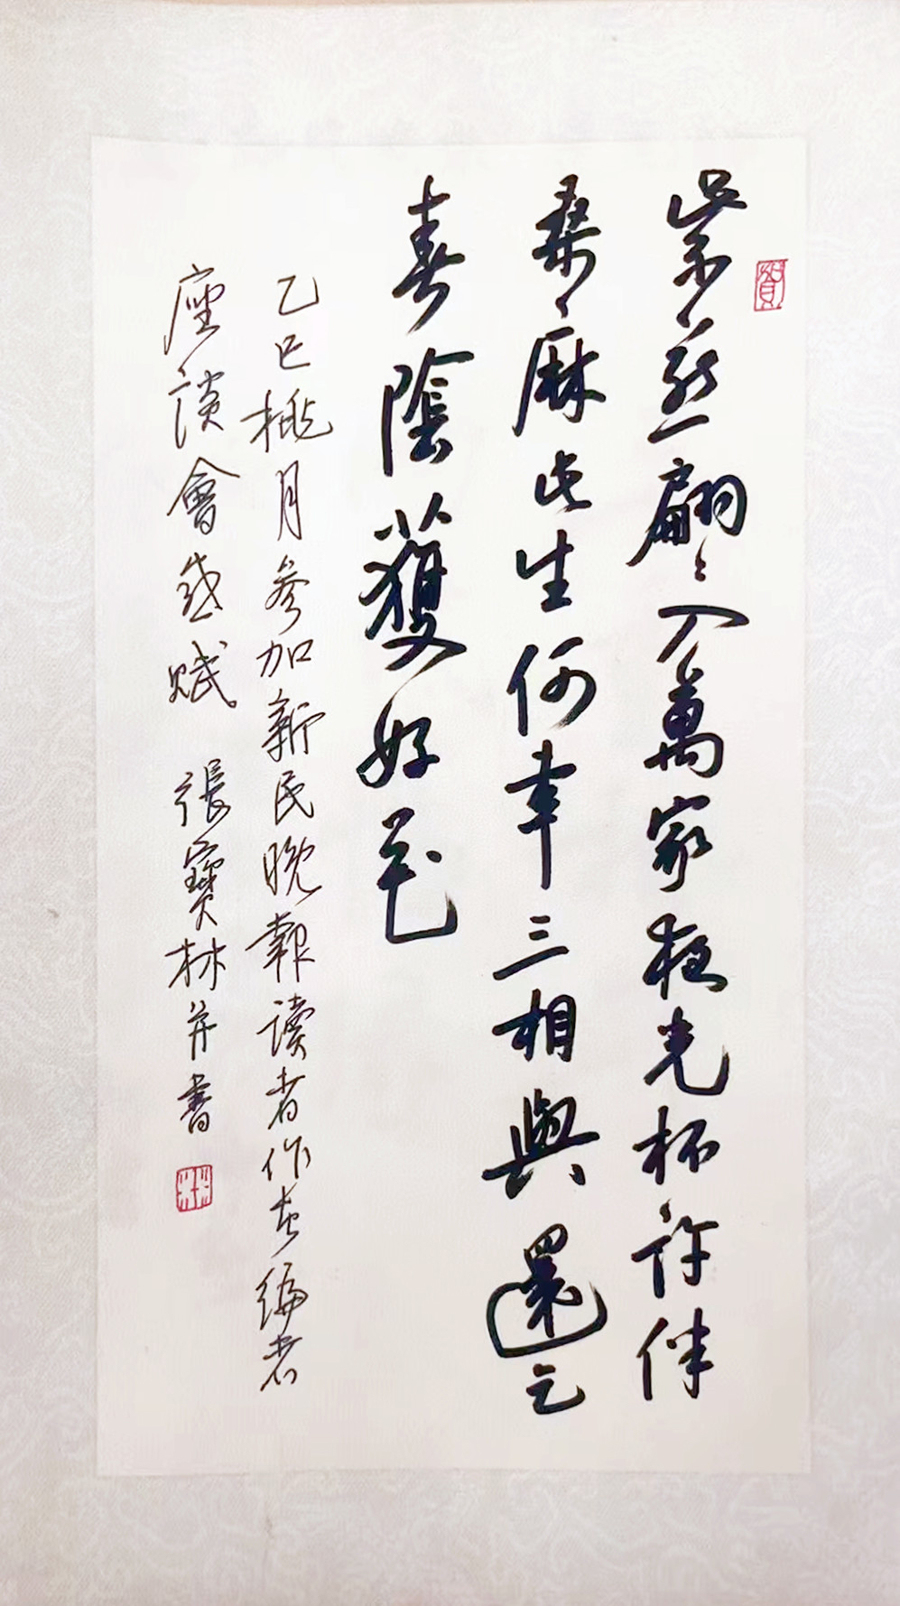 紫燕翩翩入萬家夜光杯許伴
桑麻此生何幸三相與還乞
春陰獲好花
乙巳桃月參加新民晚報讀者作者編者
座談會感賦 張寶林并書